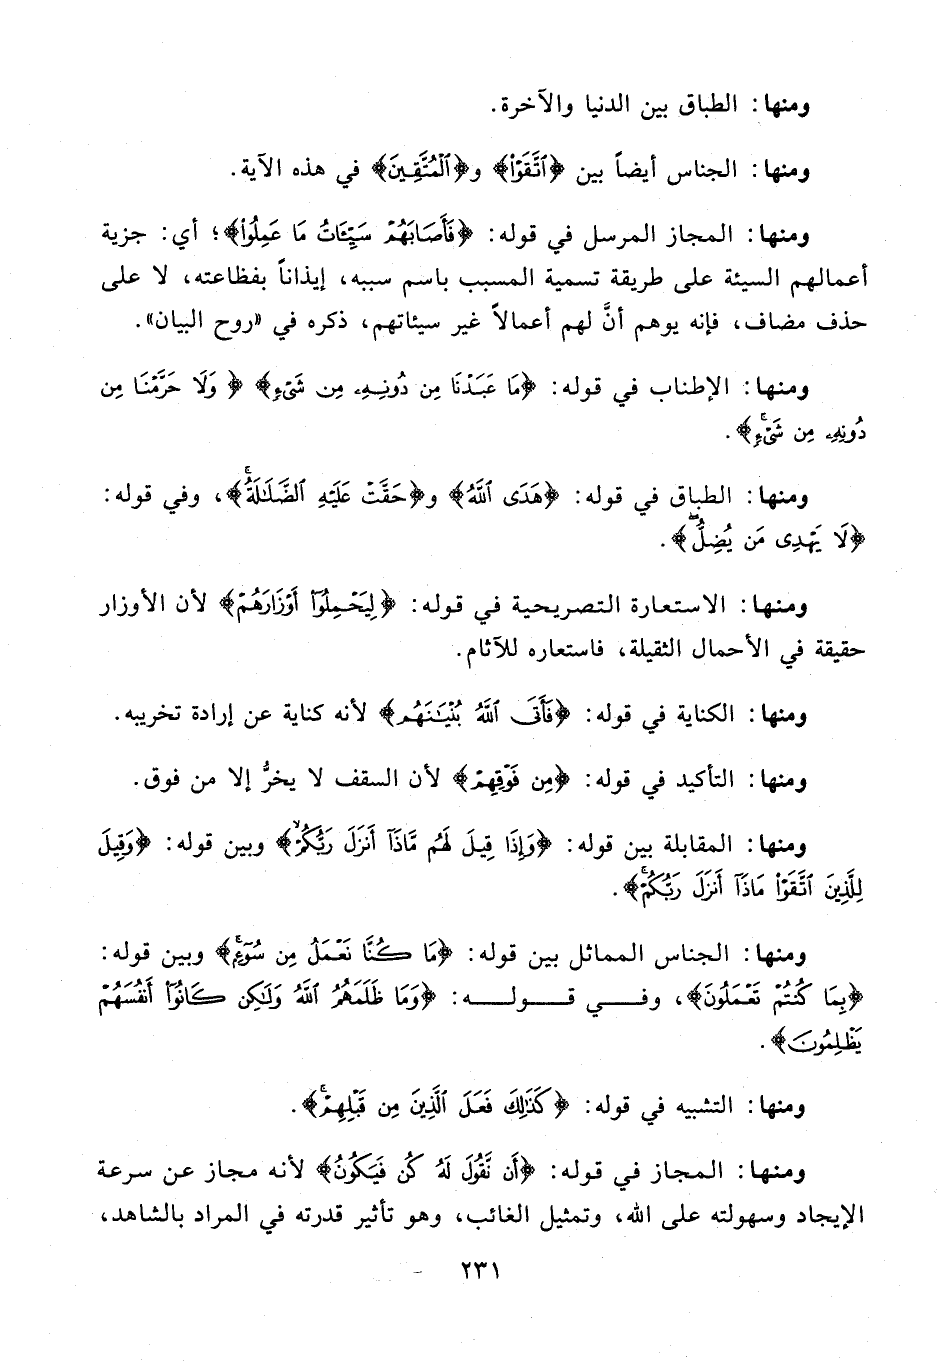 ومنها: الطباق بين الدنيا والآخرة.
ومنها: الجناس أيضاً بين ﴿ٱتَّقَوْا۟﴾ و﴿ٱلْمُتَّقِينَ﴾ في هذه الآية.
ومنها: المجاز المرسل في قوله: ﴿فَأَصَابَهُمْ سَيِّـَٔاتُ مَا عَمِلُوا۟﴾؛ أي: جزية
أعمالهم السيئة على طريقة تسمية المسبب باسم سببه، إيذاناً بفظاعته، لا على
حذف مضاف، فإنه يوهم أنَّ لهم أعمالاً غير سيئاتهم، ذكره في «روح البيان».
ومنها: الإطناب في قوله: ﴿مَا عَبَدْنَا مِن دُونِهِۦ مِن شَىْءٍ﴾ ﴿وَلَا حَرَّمْنَا مِن
دُونِهِۦ مِن شَىْءٍۚ﴾.
ومنها: الطباق في قوله: ﴿هَدَى ٱللَّهُ﴾ و﴿حَقَّتْ عَلَيْهِ ٱلضَّلَـٰلَةُۚ﴾، وفي قوله:
﴿لَا يَهْدِى مَن يُضِلُّۖ﴾.
ومنها: الاستعارة التصريحية في قوله: ﴿لِيَحْمِلُوٓا۟ أَوْزَارَهُمْ﴾ لأن الأوزار
حقيقة في الأحمال الثقيلة، فاستعاره للآثام.
ومنها: الكناية في قوله: ﴿فَأَتَى ٱللَّهُ بُنْيَـٰنَهُم﴾ لأنه كناية عن إرادة تخريبه.
ومنها: التأكيد في قوله: ﴿مِن فَوْقِهِمْ﴾ لأن السقف لا يخرُّ إلا من فوق.
ومنها: المقابلة بين قوله: ﴿وَإِذَا قِيلَ لَهُم مَّاذَآ أَنزَلَ رَبُّكُمْۙ﴾ وبين قوله: ﴿وَقِيلَ
لِلَّذِينَ ٱتَّقَوْا۟ مَاذَآ أَنزَلَ رَبُّكُمْۚ﴾.
ومنها: الجناس المماثل بين قوله: ﴿مَا كُنَّا نَعْمَلُ مِن سُوٓءٍۚ﴾ وبين قوله:
﴿بِمَا كُنتُمْ تَعْمَلُونَ﴾، وفــي قــولــه: ﴿وَمَا ظَلَمَهُمُ ٱللَّهُ وَلَـٰكِن كَانُوٓا۟ أَنفُسَهُمْ
يَظْلِمُونَ﴾.
ومنها: التشبيه في قوله: ﴿كَذَٰلِكَ فَعَلَ ٱلَّذِينَ مِن قَبْلِهِمْۚ﴾.
ومنها: المجاز في قوله: ﴿أَن نَّقُولَ لَهُۥ كُن فَيَكُونُ﴾ لأنه مجاز عن سرعة
الإيجاد وسهولته على الله، وتمثيل الغائب، وهو تأثير قدرته في المراد بالشاهد،
٢٣١